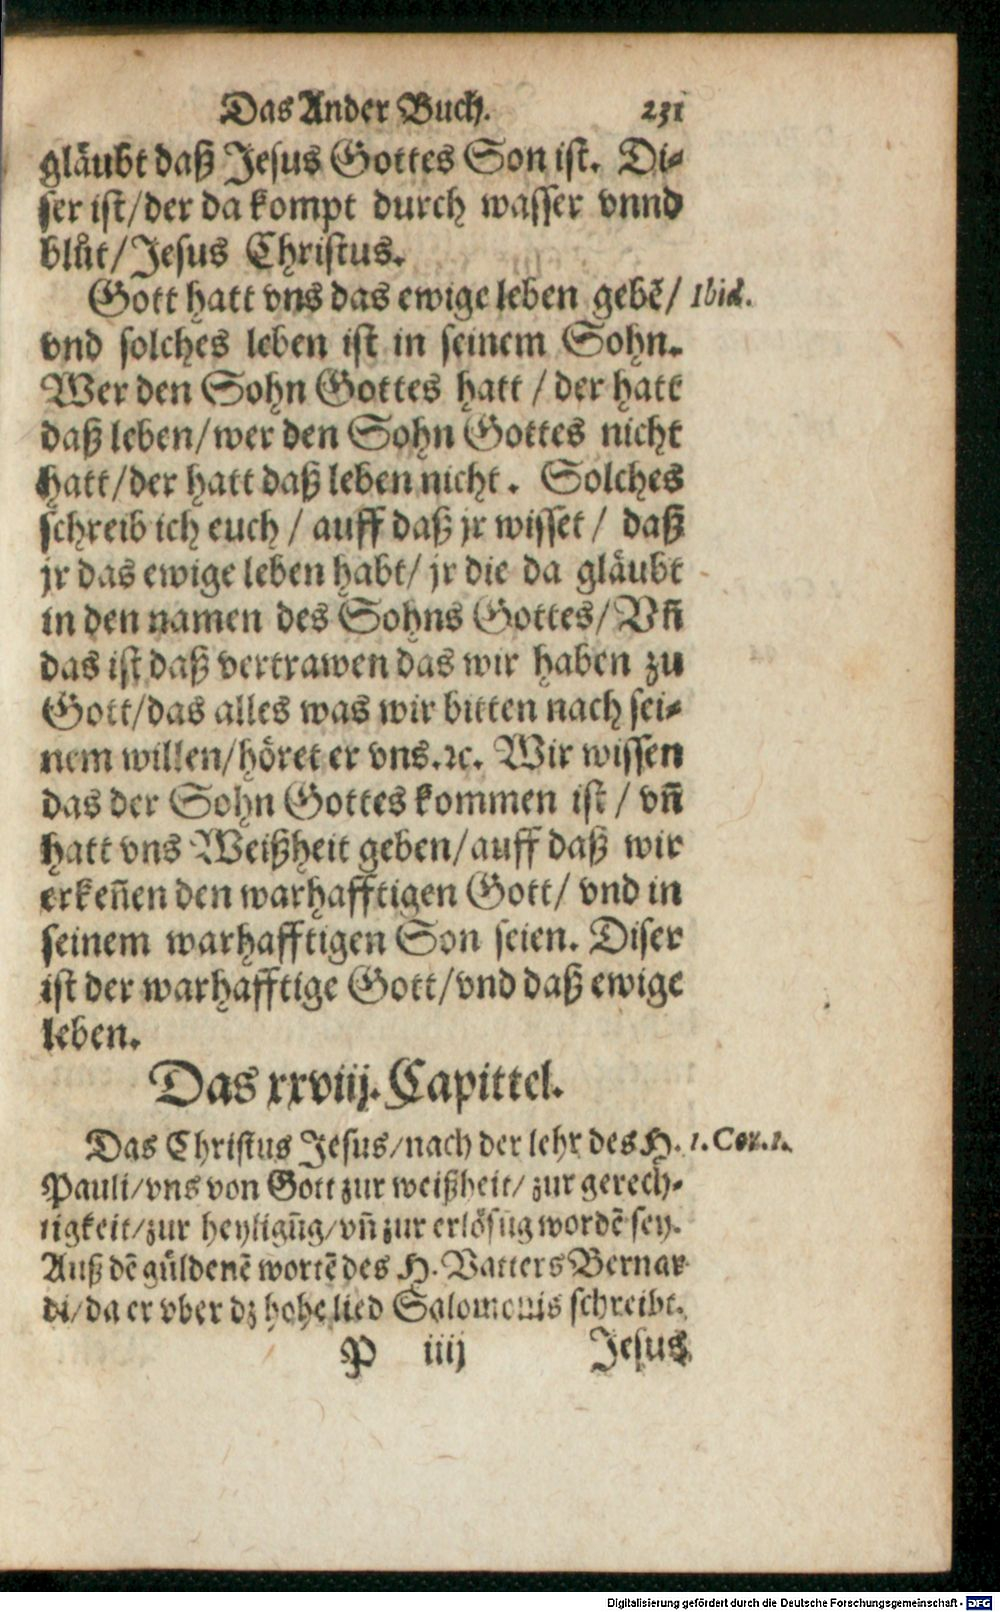 Das Ander Buch. 231
gläubt daß Jesus Gottes Son ist. Di-
ser ist/der da kompt durch wasser vnnd
blůt/Jesus Christus.
Gott hatt vns das ewige leben gebē/ Ibid.
vnd solches leben ist in seinem Sohn.
Wer den Sohn Gottes hatt / der hatt
daß leben/wer den Sohn Gottes nicht
hatt/der hatt daß leben nicht. Solches
schreib ich euch / auff daß jr wisset / daß
jr das ewige leben habt/ jr die da gläubt
in den namen des Sohns Gottes/ Vñ
das ist daß vertrawen das wir haben zu
Gott/das alles was wir bitten nach sei-
nem willen/höret er vns.ꝛc. Wir wissen
das der Sohn Gottes kommen ist / vñ
hatt vns Weißheit geben/auff daß wir
erkeñen den warhafftigen Gott/ vnd in
seinem warhafftigen Son seien. Diser
ist der warhafftige Gott/vnd daß ewige
leben.
Das xxviij. Capittel.
Das Christus Jesus/nach der lehr des H. 1. Cor. 1.
Pauli/vns von Gott zur weißheit/ zur gerech-
tigkeit/zur heyligūg/vñ zur erlösūg wordē sey.
Auß dē güldenē wortē des H. Vatters Bernar
di/da er vber dz hohe lied Salomonis schreibt.
P iiij Jesus
Digitalisierung gefördert durch die Deutsche Forschungsgemeinschaft - DFG